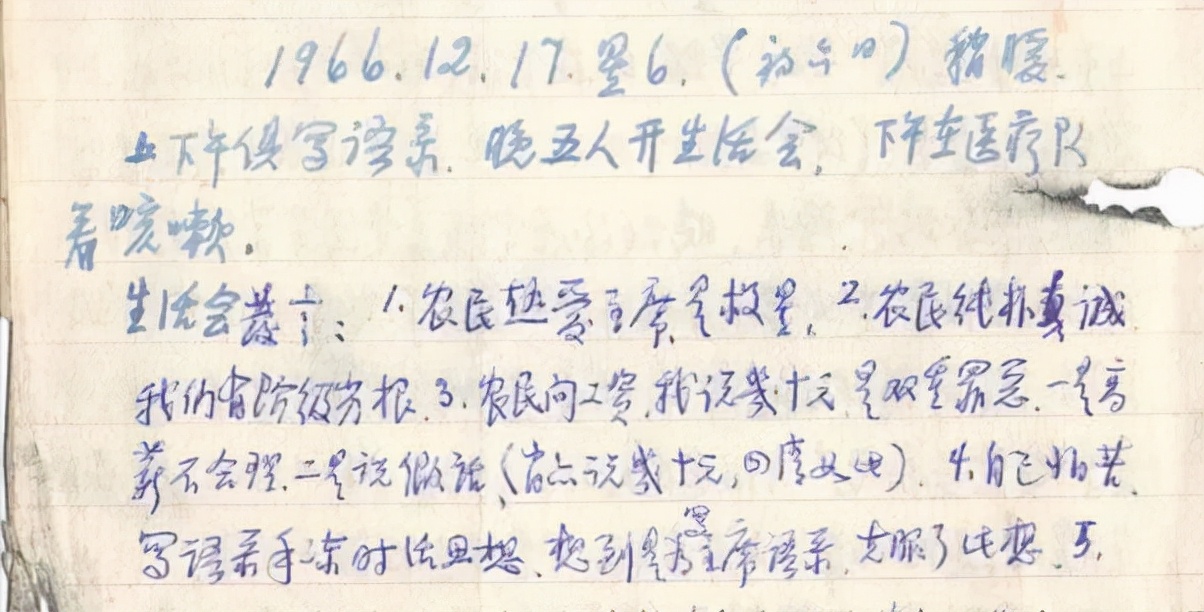 1966.12.17.星6.(初六日)稍暖.
上下午俱写语录.晚五人开生活会.下午在医疗队
着咳嗽.
生活会发言:1.农民热爱主席是救星.2.农民纯朴真诚
我们有阶级劣根.3.农民问工资,我说几十元,是双重罪恶.一是高
薪不合理.二是说假话,(言只说几十元,回答如此).4.自己怕苦.
写语录手冻时活思想.想到是写主席语录,克服了此想.5.